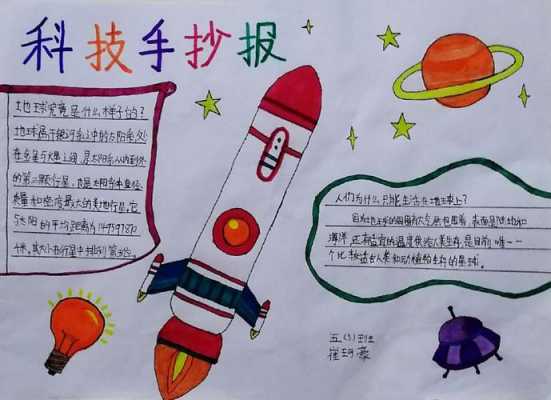 科技手抄报
地球究竟是什么样子的?
地球属于银河系之中的太阳系,处
在金星与火星之间,是太阳系从内到外
的第三颗行星,也是太阳系中直径、
质量和密度最大的类地行星。它
与太阳的平均距离为149597870
千米,其大小在行星中排列第5位。
人们为什么只能生活在地球上?
因为地球的周围有大气层包围着,表面是陆地和
海洋,还有适宜的温度供给人类生存,是目前唯一一
个比较适合人类和动植物生存的星球。
五(5)班
崔 豪